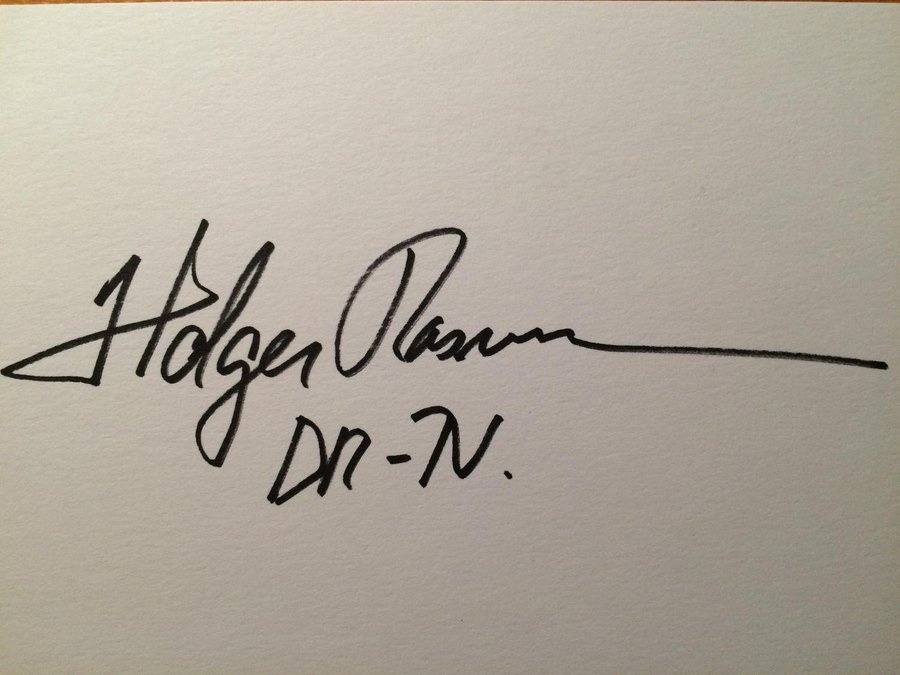 Holger Rasmussen
DR-TV.